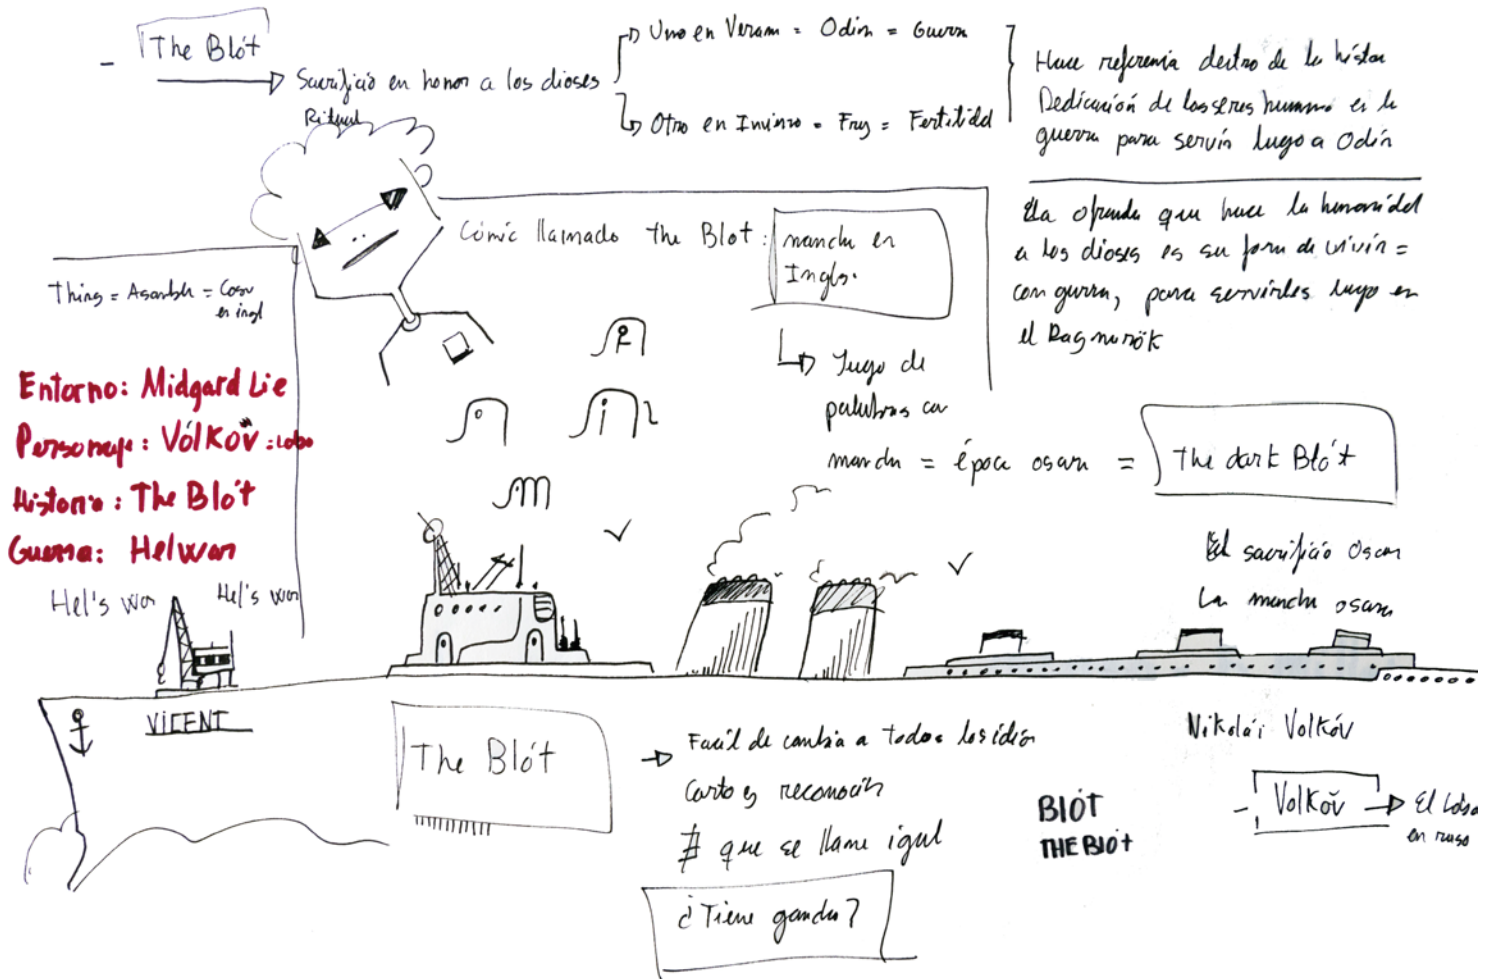 The Blót
Sacrificio en honor a los dioses
Ritual
Uno en Veram = Odín = Guerra
Otro en Invinro = Frey = Fertilidad
Hace referencia dentro de la histor
Dedicación de los seres humano es la
guerra para servir luego a Odín
La ofrenda que hace la humanidad
a los dioses es su form de vivir =
con gurra, para servirles luego en
el Ragnarök
Cómic llamado The Blot:
mancha en
Ingls.
Juego de
palabras con
mancha = época oscura =
The dark Blót
El sacrificio Oscuro
La mancha oscura
Thing = Asamblea = Cosa
en ingl
Entorno: Midgard Lie
Personaje: Vólkov̌ = Lobo
Historia: The Blót
Guerra: Helwar
Hel's war
Hel's war
VICENT
The Blót
Facil de cambia a todos los idio
Corto y reconocib
∄ que se llame igual
¿Tiene gancho?
BLÓT
THE BLÓT
Nikolái Volkóv
Volkov̌
El Lobo
en ruso